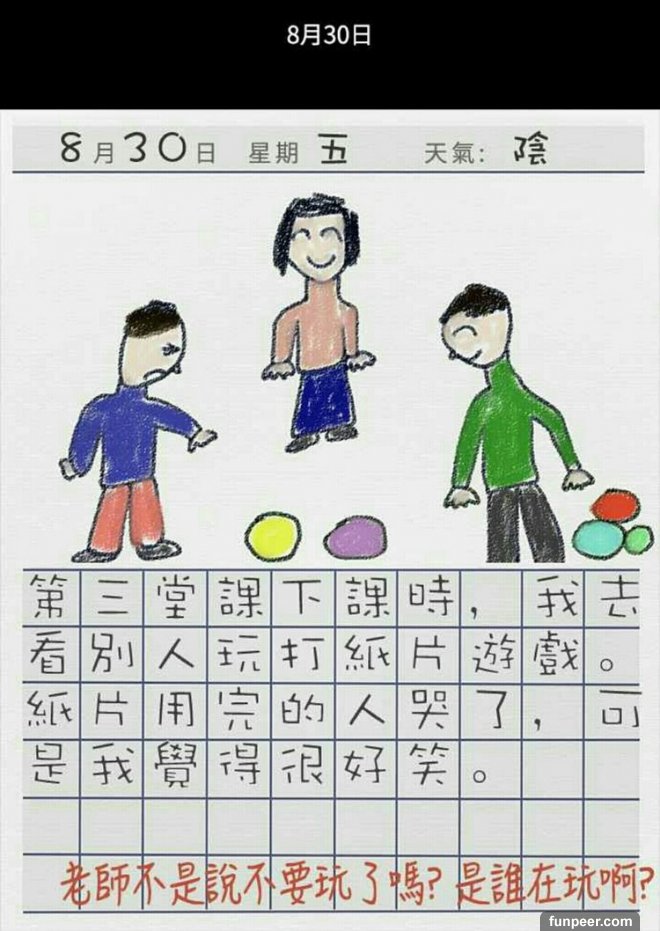 8月30日
8月30日 星期 五 天氣: 陰
第三堂課下課時，我去
看別人玩打紙片遊戲。
紙片用完的人哭了，可
是我覺得很好笑。
老師不是說不要玩了嗎?是誰在玩啊?
funpeer.com